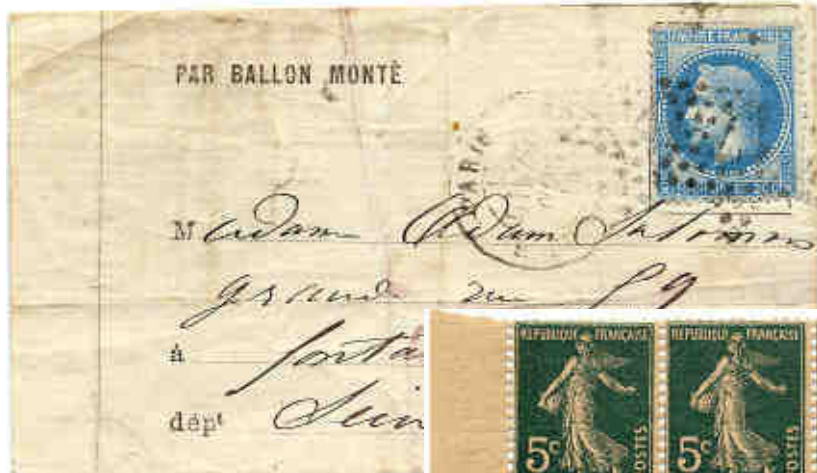 PAR BALLON MONTÉ
PARIS
Madame Adam Salomon
grande rue 89
à fonta
dépt Sein
REPUBLIQUE FRANÇAISE REPUBLIQUE FRANÇAISE
5c POSTES 5c POSTES